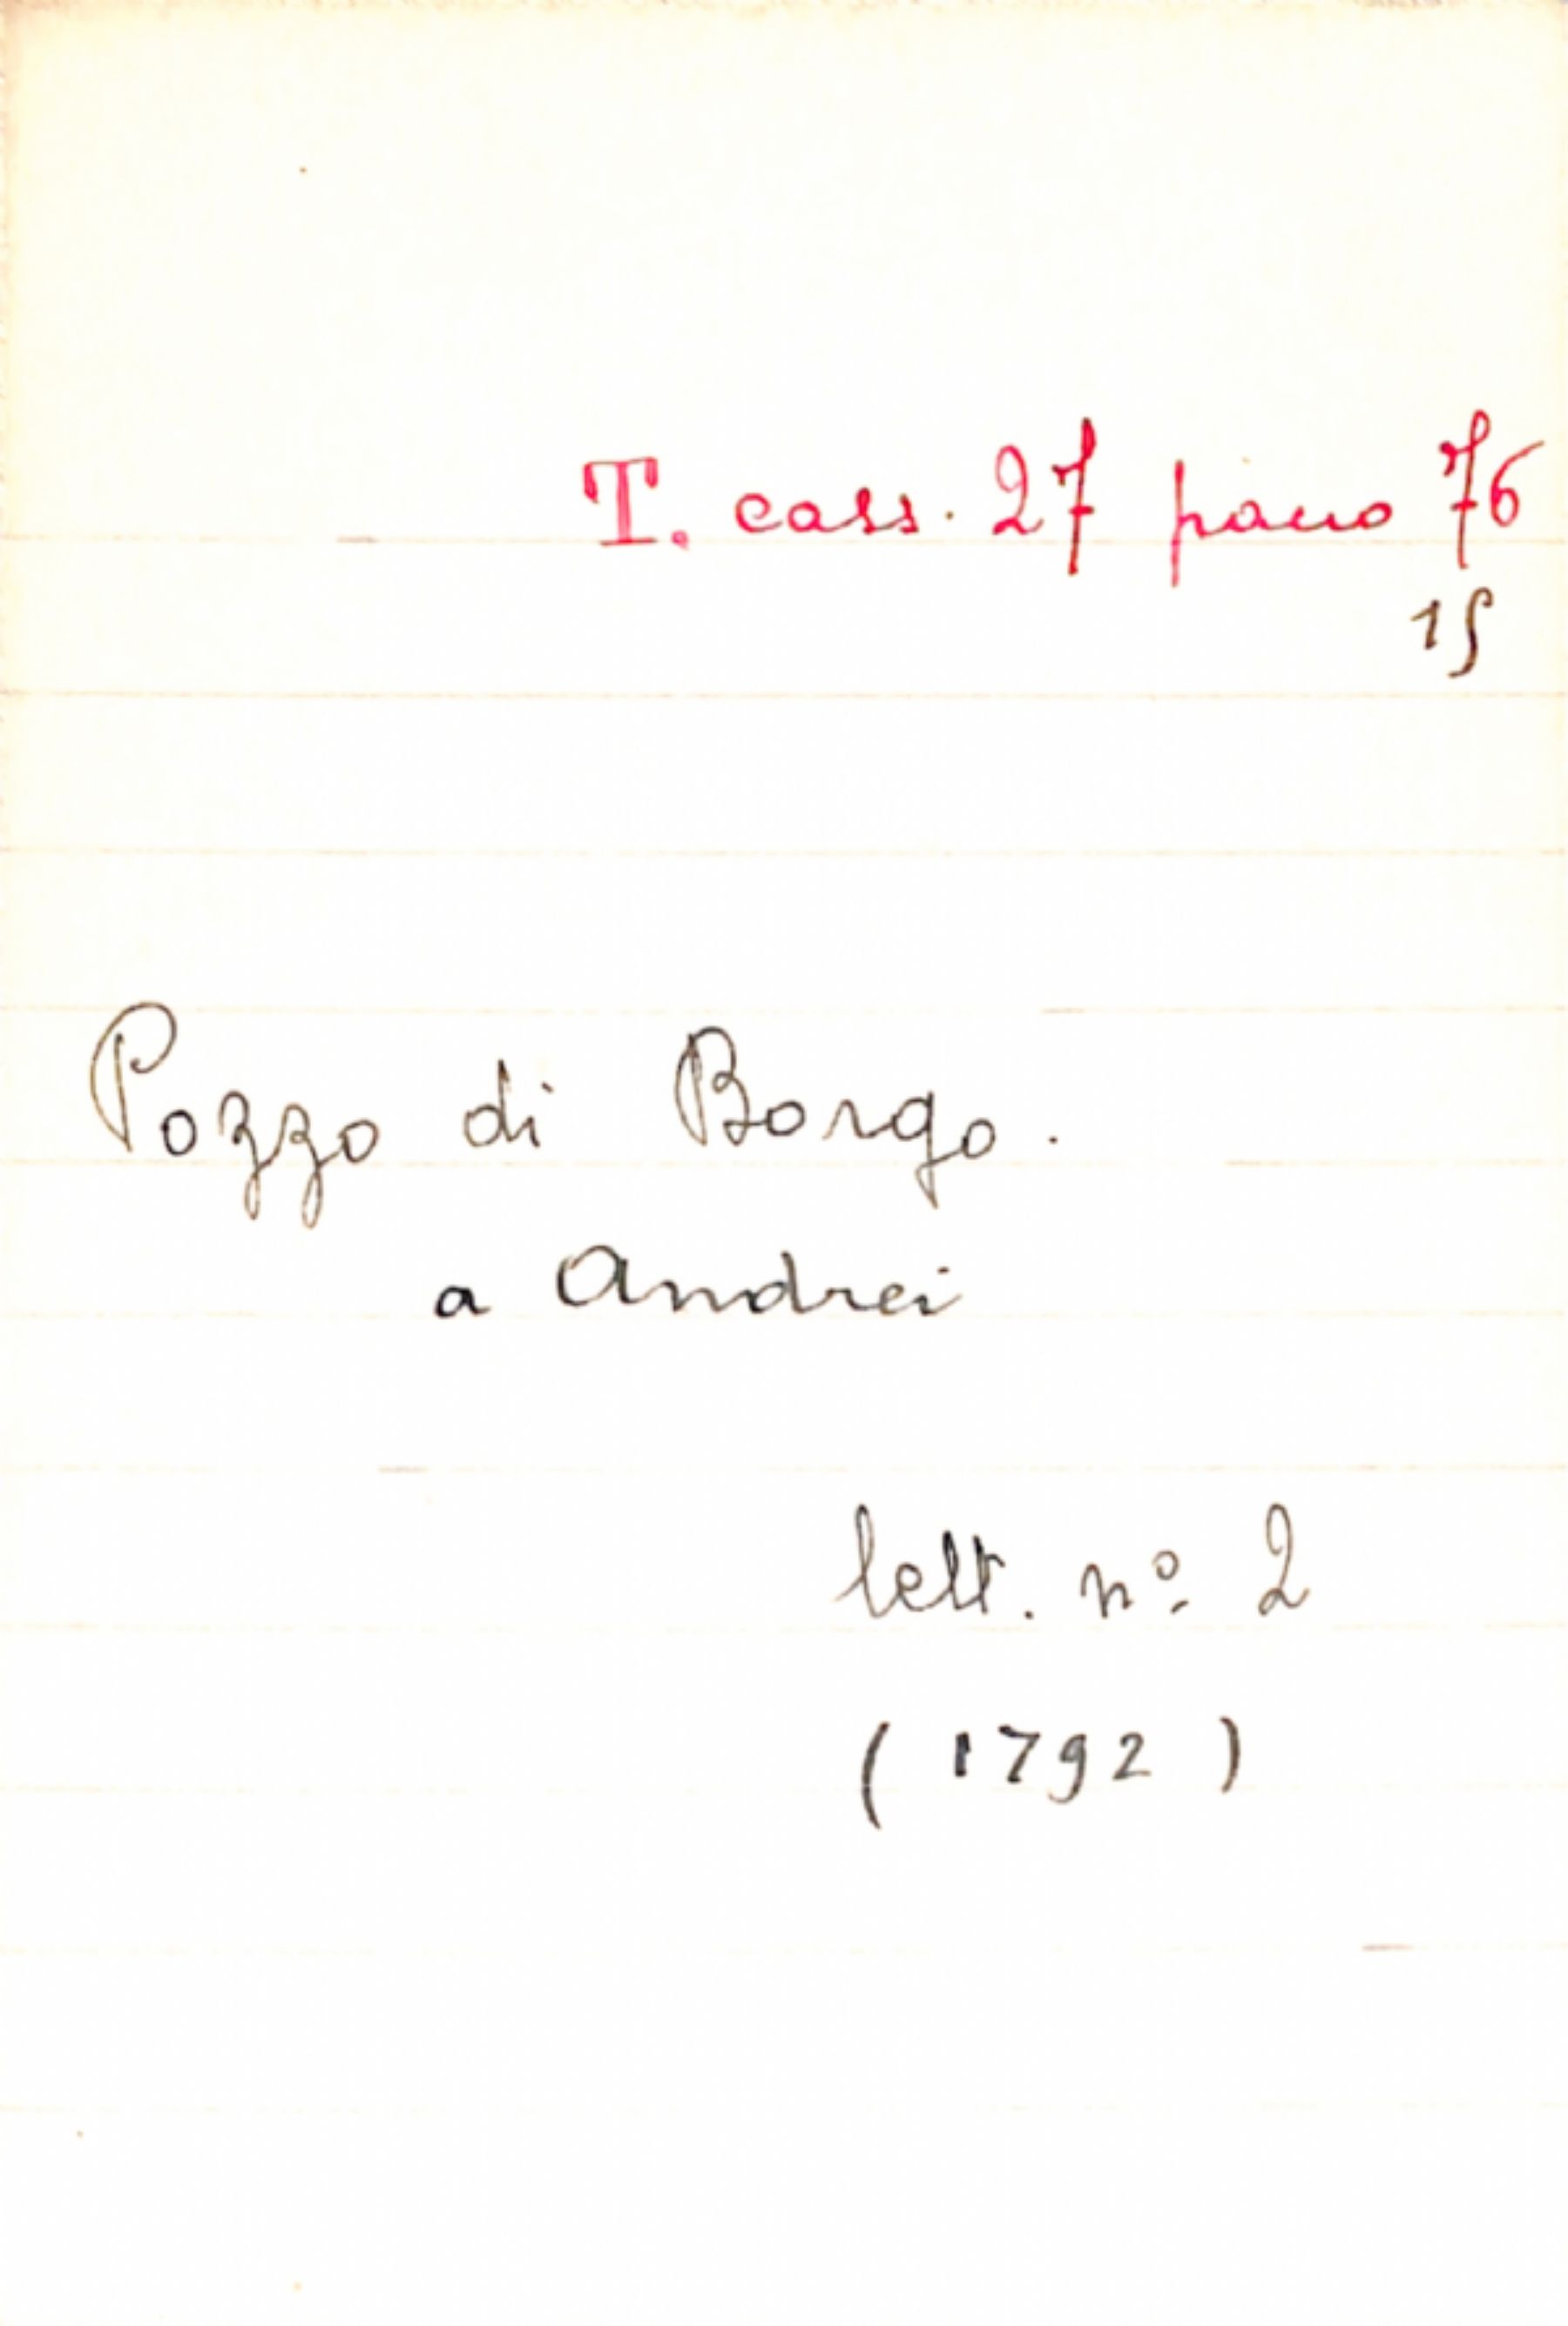 T. cass. 27 pacco 76
15
Pozzo di Borgo.
a Andrei
lett. nº 2
(1792)